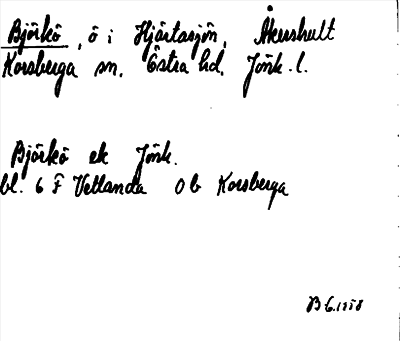 Björkö, ö i Hjärtasjön, Åkershult
Korsberga sn. Östra hd. Jönk. l.
Björkö ek Jönk.
bl. 6 F Vetlanda Ob Korsberga